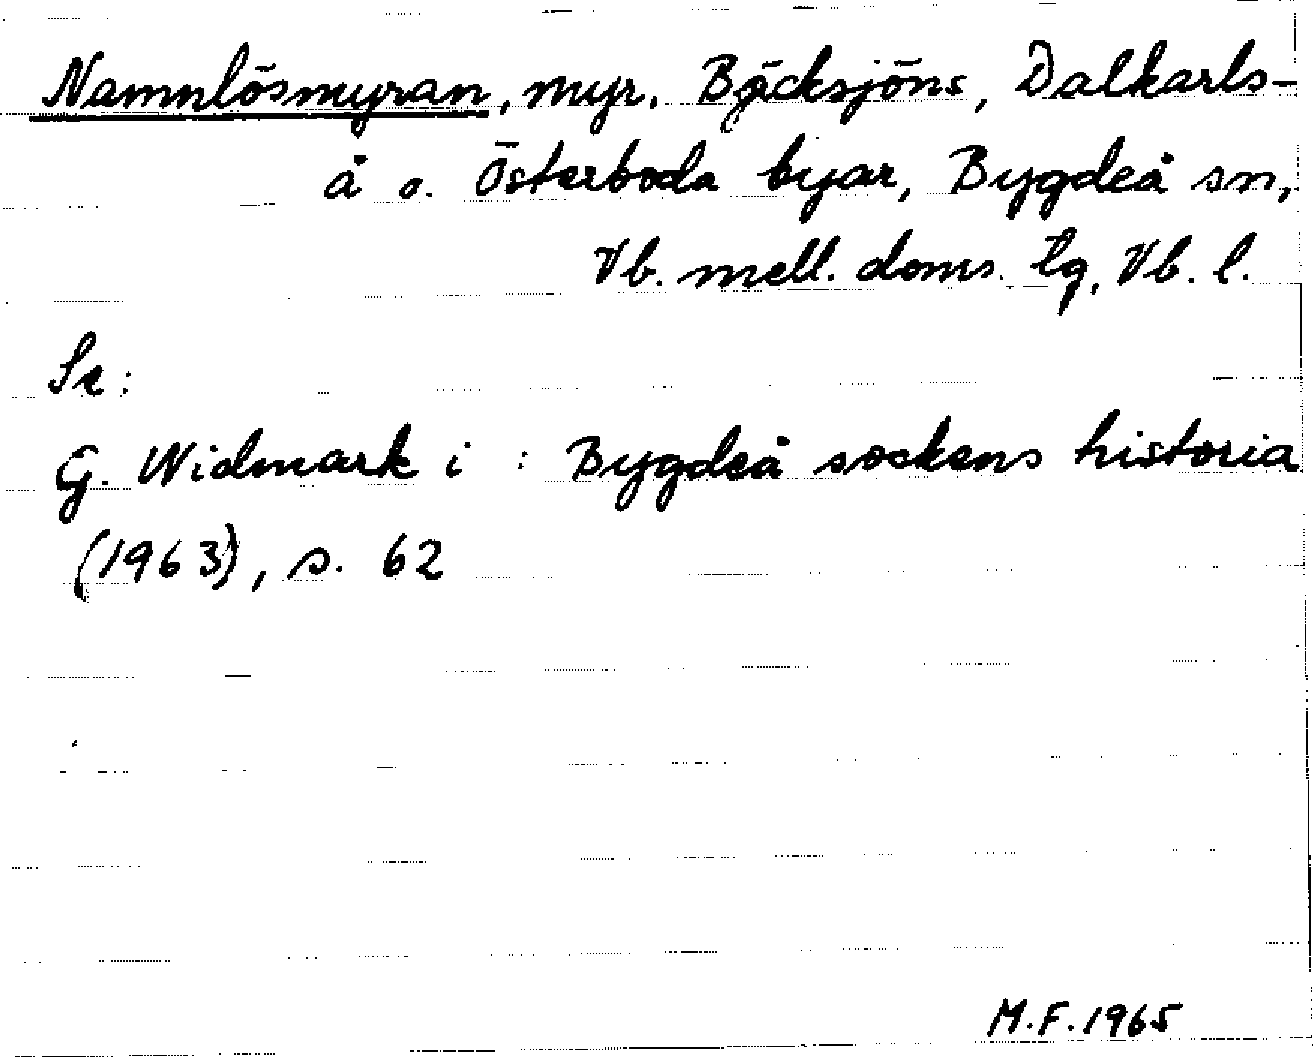 Namnlösmyran, myr. Bäcksjöns, Dalkarls-
å o. Österboda byar, Bygdeå sn,
Vb. mell. doms. tg, Vb. l.
Se:
G. Widmark i : Bygdeå sockens historia
(1963), s. 62
M.F. 1965